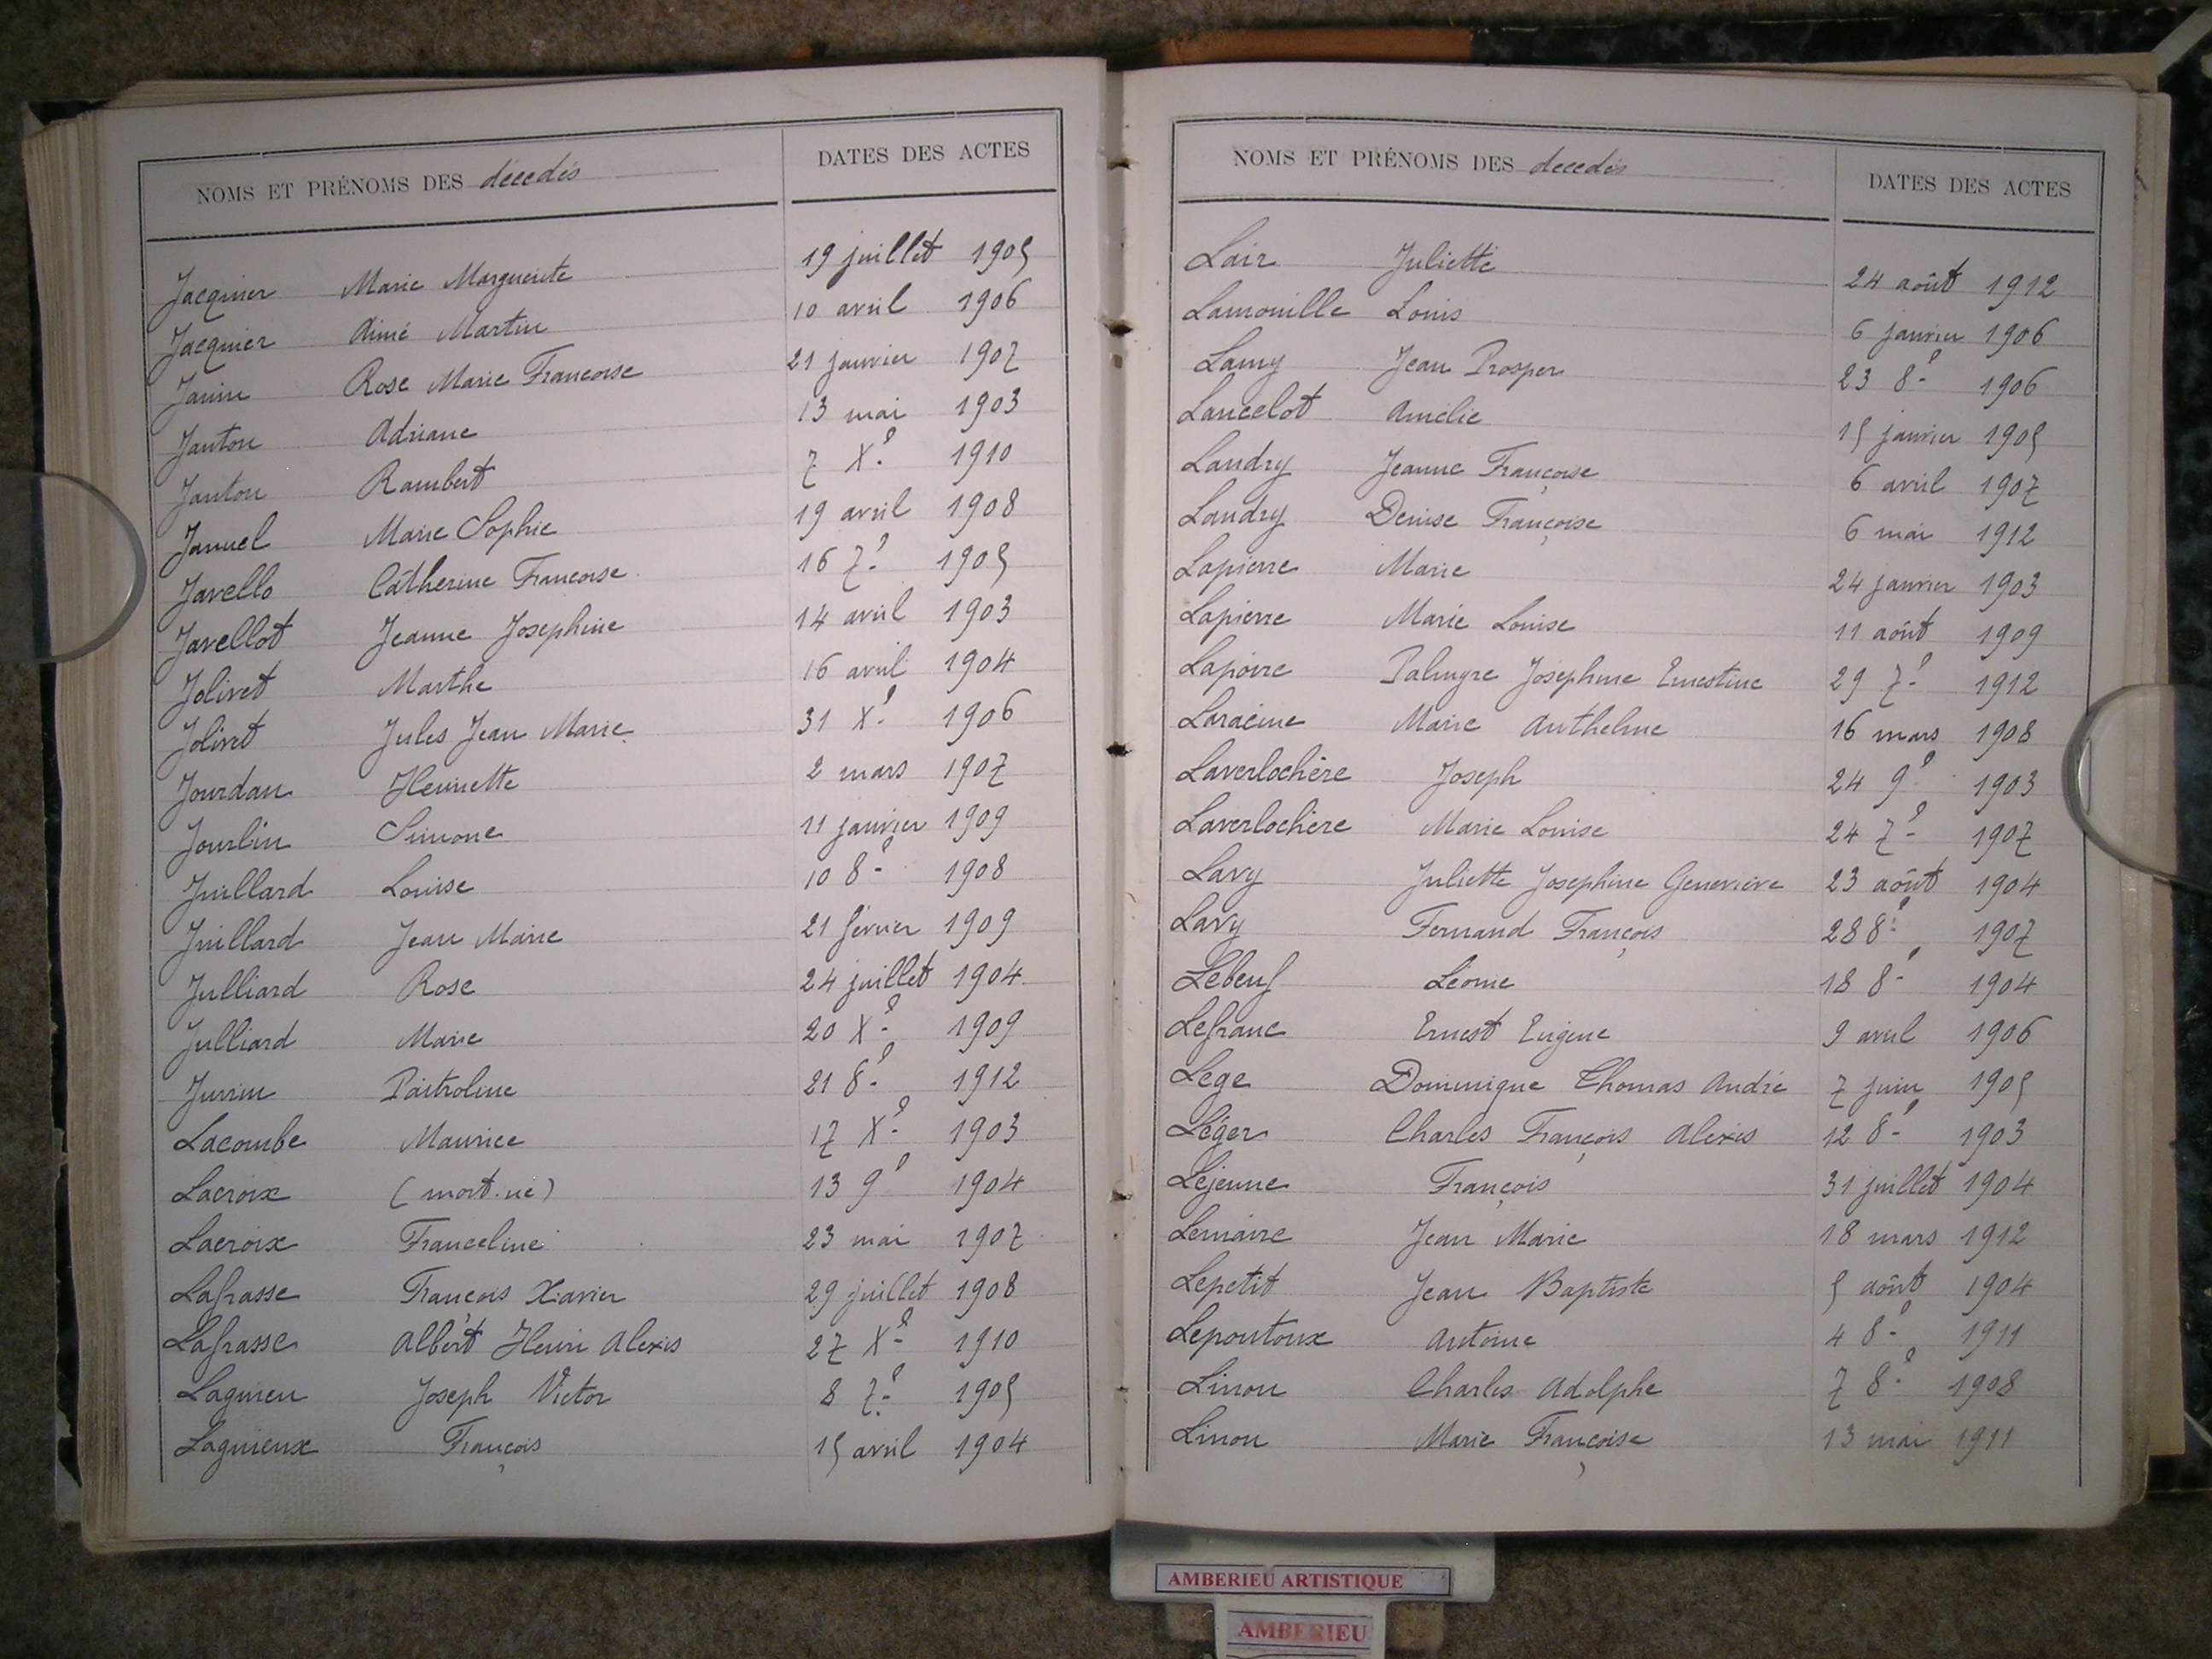 NOMS ET PRÉNOMS DES décedés DATES DES ACTES
Jacquier Marie Marguerite 19 juillet 1905
Jacquier Aimé Martin 10 avril 1906
Janin Rose Marie Francoise 21 janvier 1907
Janton Adriane 13 mai 1903
Janton Rambert 7 Xe 1910
Januel Marie Sophie 19 avril 1908
Javello Catherine Francoise 16 7e 1905
Javellot Jeanne Josephine 14 avril 1903
Jolivet Marthe 16 avril 1904
Jolivet Jules Jean Marie 31 Xe 1906
Jourdan Henriette 2 mars 1907
Jourlin Simone 11 janvier 1909
Juillard Louise 10 8e 1908
Juillard Jean Marie 21 février 1909
Julliard Rose 24 juillet 1904
Julliard Marie 20 Xe 1909
Jurin 21 8e 1912
Lacombe Maurice 17 Xe 1903
Lacroix (mort-né) 13 9e 1904
Lacroix Franceline 23 mai 1907
Lafrasse François Xavier 29 juillet 1908
Lafrasse Albert Henri Alexis 27 Xe 1910
Lagnieu Joseph Victor 8 7e 1905
Lagnieux François 15 avril 1904
NOMS ET PRÉNOMS DES décedés DATES DES ACTES
Lair Juliette 24 août 1912
Lamouille Louis 6 janvier 1906
Lamy Jean Prosper 23 8e 1906
Lancelot Amélie 15 janvier 1905
Landry Jeanne Françoise 6 avril 1907
Landry Denise Françoise 6 mai 1912
Lapierre Marie 24 janvier 1903
Lapierre Marie Louise 11 août 1909
Lapoire Palmyre Joséphine Ernestine 29 7e 1912
Laracine Marie Anthelme 16 mars 1908
Laverlochère Joseph 24 9e 1903
Laverlochère Marie Louise 24 7e 1907
Lavy Juliette Josephine Geneviève 23 août 1904
Lavy Fernand François 28 8e 1907
Lebeuf Léonie 18 8e 1904
Lefranc Ernest Eugene 9 avril 1906
Lege Dominique Thomas André 7 juin 1905
Léger Charles François Alexis 12 8e 1903
Lejeune François 31 juillet 1904
Lemaire Jean Marie 18 mars 1912
Lepetit Jean Baptiste 5 août 1904
Lepoutoux Antoine 4 8e 1911
Linou Charles Adolphe 7 8e 1908
Linou Marie Françoise 13 mai 1911
AMBERIEU ARTISTIQUE
AMBERIEU